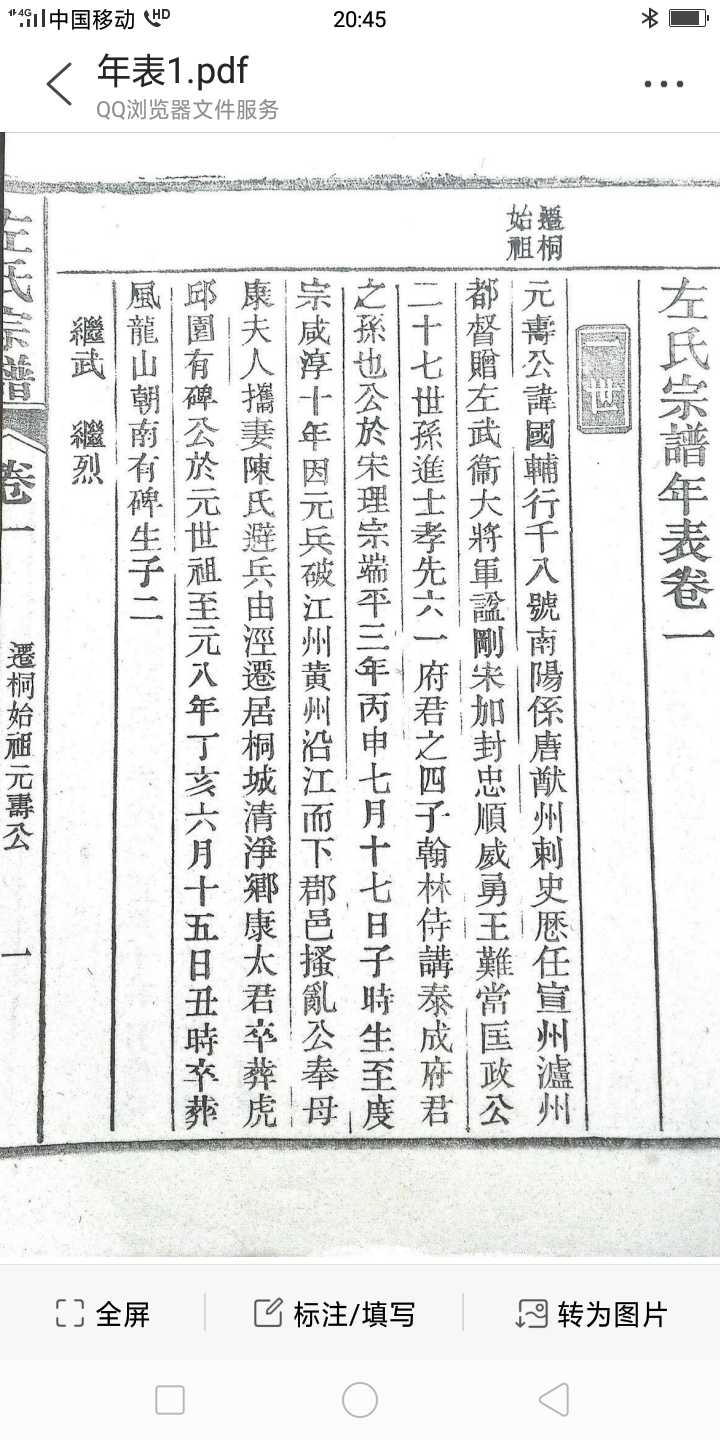 4G 中国移动 HD 20:45
年表1.pdf
QQ浏览器文件服务
左氏宗譜年表卷一
一世
遷桐
始祖
元壽公諱國輔行千八號南陽係唐猷州刺史歷任宣州瀘州
都督贈左武衞大將軍諡剛宋加封忠順威勇王難當匡政公
二十七世孫進士孝先六一府君之四子翰林侍講泰成府君
之孫也公於宋理宗端平三年丙申七月十七日子時生至度
宗咸淳十年因元兵破江州黃州沿江而下郡邑搔亂公奉母
康夫人攜妻陳氏避兵由涇遷居桐城清淨鄉康太君卒葬虎
邱園有碑公於元世祖至元八年丁亥六月十五日丑時卒葬
風龍山朝南有碑生子二
繼武 繼烈
左氏宗譜 卷一 遷桐始祖元壽公 一
全屏 标注/填写 转为图片